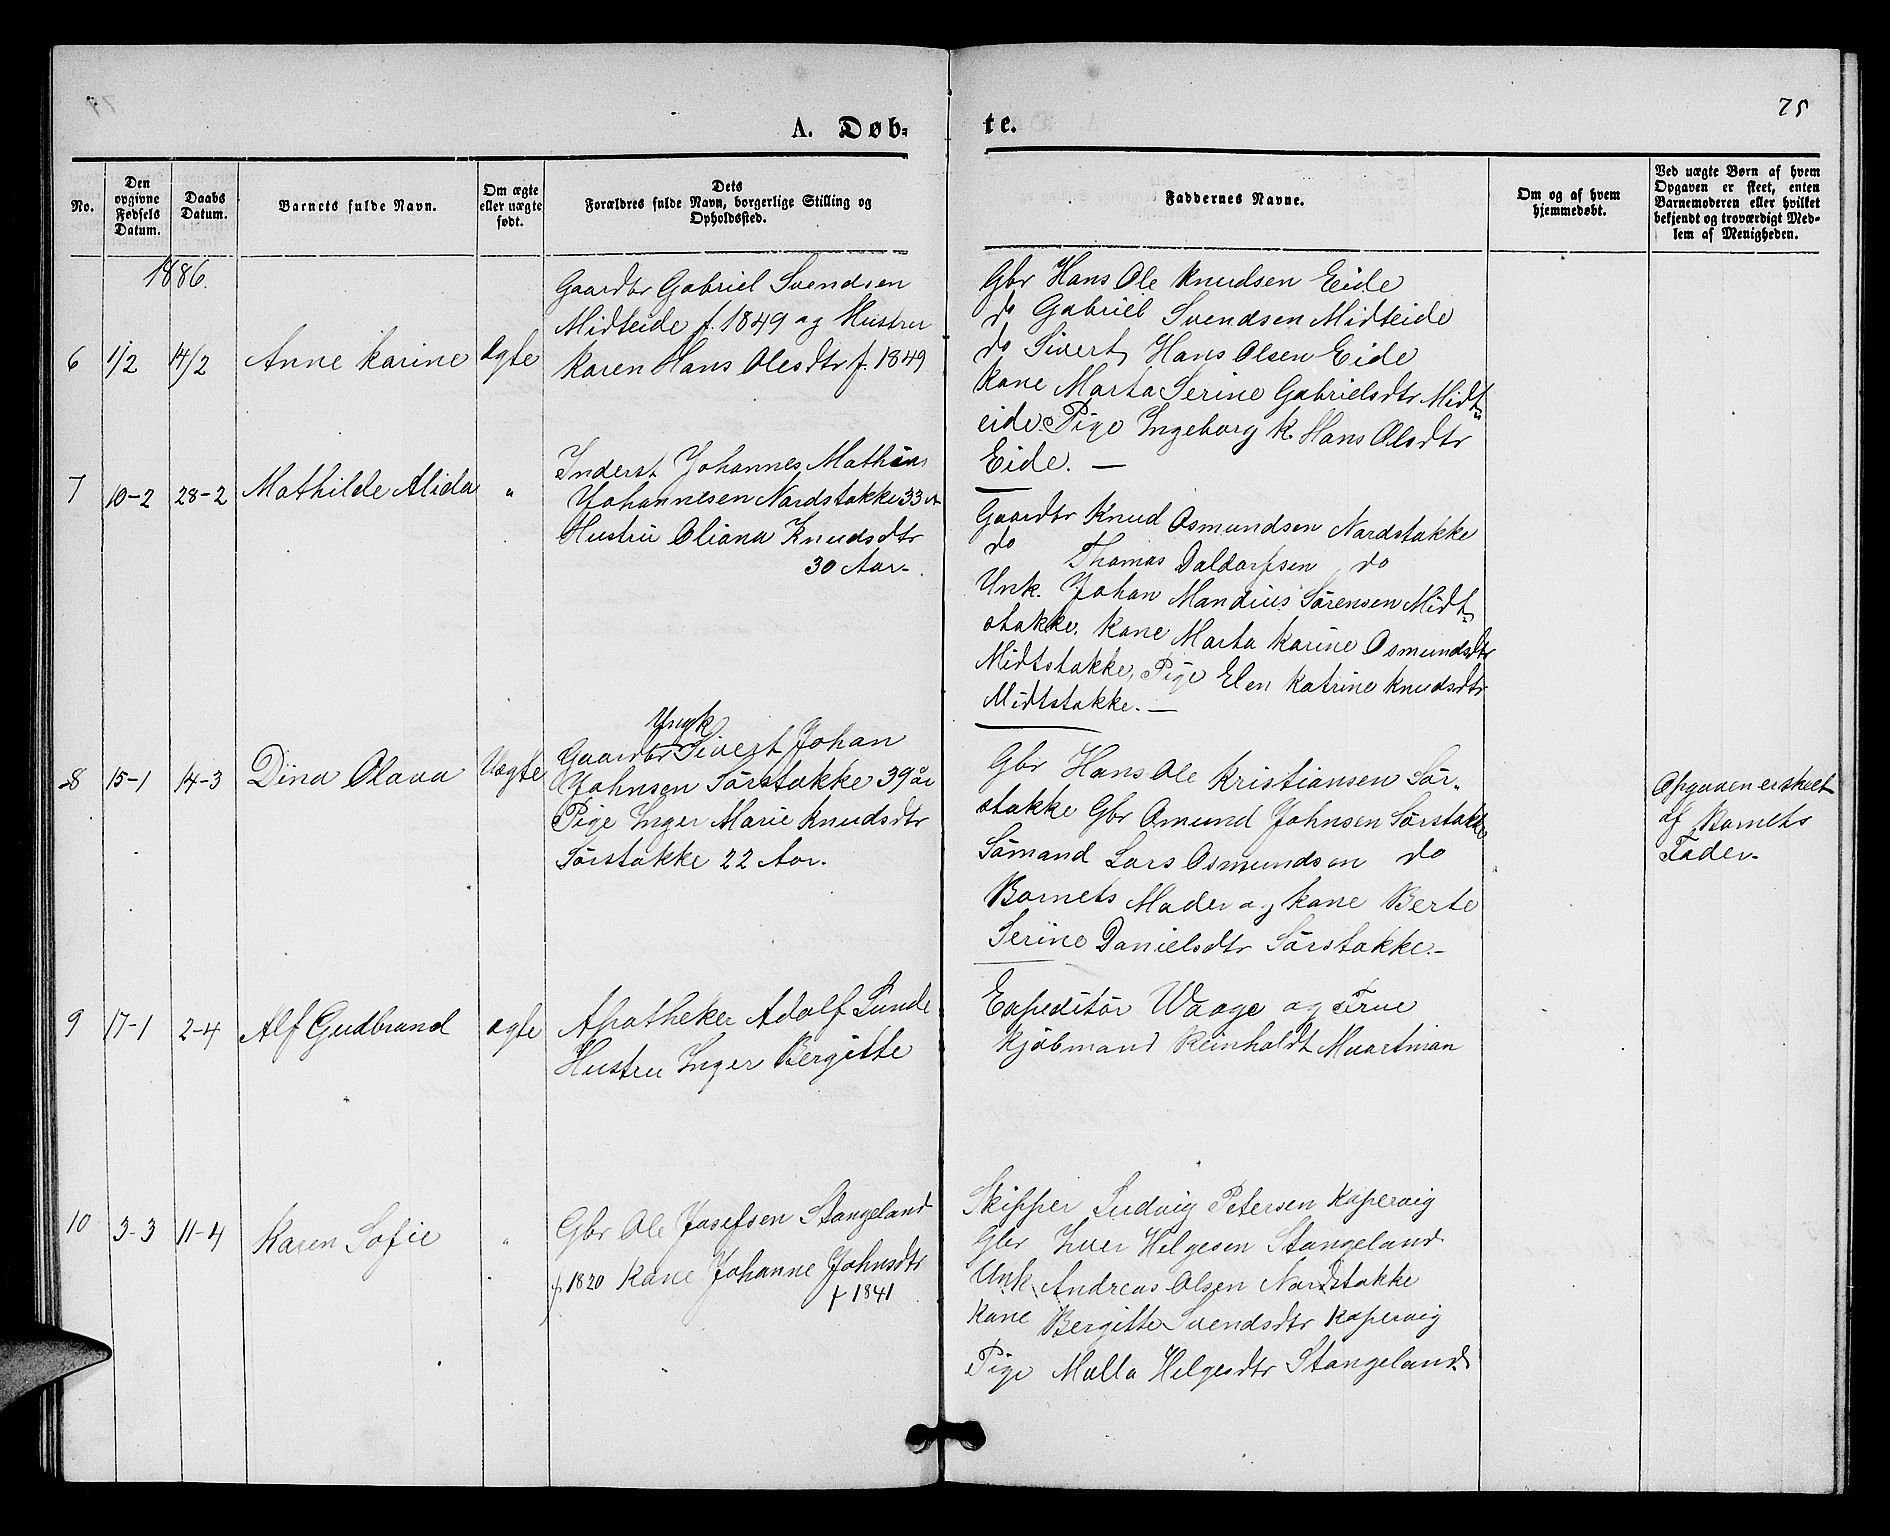 75
A. Døb-
te.
No.
Den opgivne Fødsels Datum.
Daabs Datum.
Barnets fulde Navn.
Om ægte eller uægte født.
Dets Forældres fulde Navn, borgerlige Stilling og Opholdssted.
Faddernes Navne.
Om og af hvem hjemmedøbt.
Ved uægte Børn af hvem Opgaven er skeet, enten Barnemoderen eller hvilket bekjendt og troværdigt Medlem af Menigheden.
1886.
6 1/2 14/2 Anne Karine Ægte
Gaardbr Gabriel Svendsen
Midteide f. 1849 og Hustru
Karen Hans Olesdtr f. 1849
Gbr Hans Ole Knudsen Eide
do Gabriel Svendsen Midteide
do Sivert Hans Olsen Eide
Kone Marta Serine Gabrielsdtr Midt-
eide. Pige Ingeborg K. Hans Olsdtr
Eide. —
7 10-2 28-2 Mathilde Alida "
Inderst Johannes Mathias
Johannesen Nordstokke 33 A
Hustru Oliana Knudsdtr
30 Aar.
Gaardbr Knud Osmundsen Nordstokke
do Thomas Daldorfsen do
Unk. Johan Mandius Sørensen Midt-
stokke. Kone Marta Karine Osmundsdtr
Midtstokke, Pige Elen Katrine Knudsdtr
Midtstokke. —
8 15-1 14-3 Dina Olava Uægte
Yngk
Gaardbr Sivert Johan
Johnsen Sørstokke 39 år
Pige Inger Marie Knudsdtr
Sørstokke 22 Aar.
Gbr Hans Ole Kristiansen Sør-
stokke Gbr Omund Johnsen Sørstokke
Sømand Lars Osmundsen do
Barnets Moder og Kone Berte
Serine Danielsdtr Sørstokke. —
Opgaven er skeet
af Barnets
Fader.
9 17-1 2-4 Alf Gudbrand ægte
Apotheker Adolf Lunde
Hustru Inger Bergitte
Expeditør Waage og Frue
Kjøbmand Reinholdt
10 3-3 11-4 Karen Sofie "
Gbr Ole Josefsen Stangeland
f 1820 Kone Johanne Johnsdtr
f 1841
Skipper Ludvig Petersen Kopervig
Gbr Iver Helgesen Stangeland
Unk Andreas Olsen Nordstokke
Kone Bergitte Svendsdtr Kopervig
Pige Malla Helgesdtr Stangeland